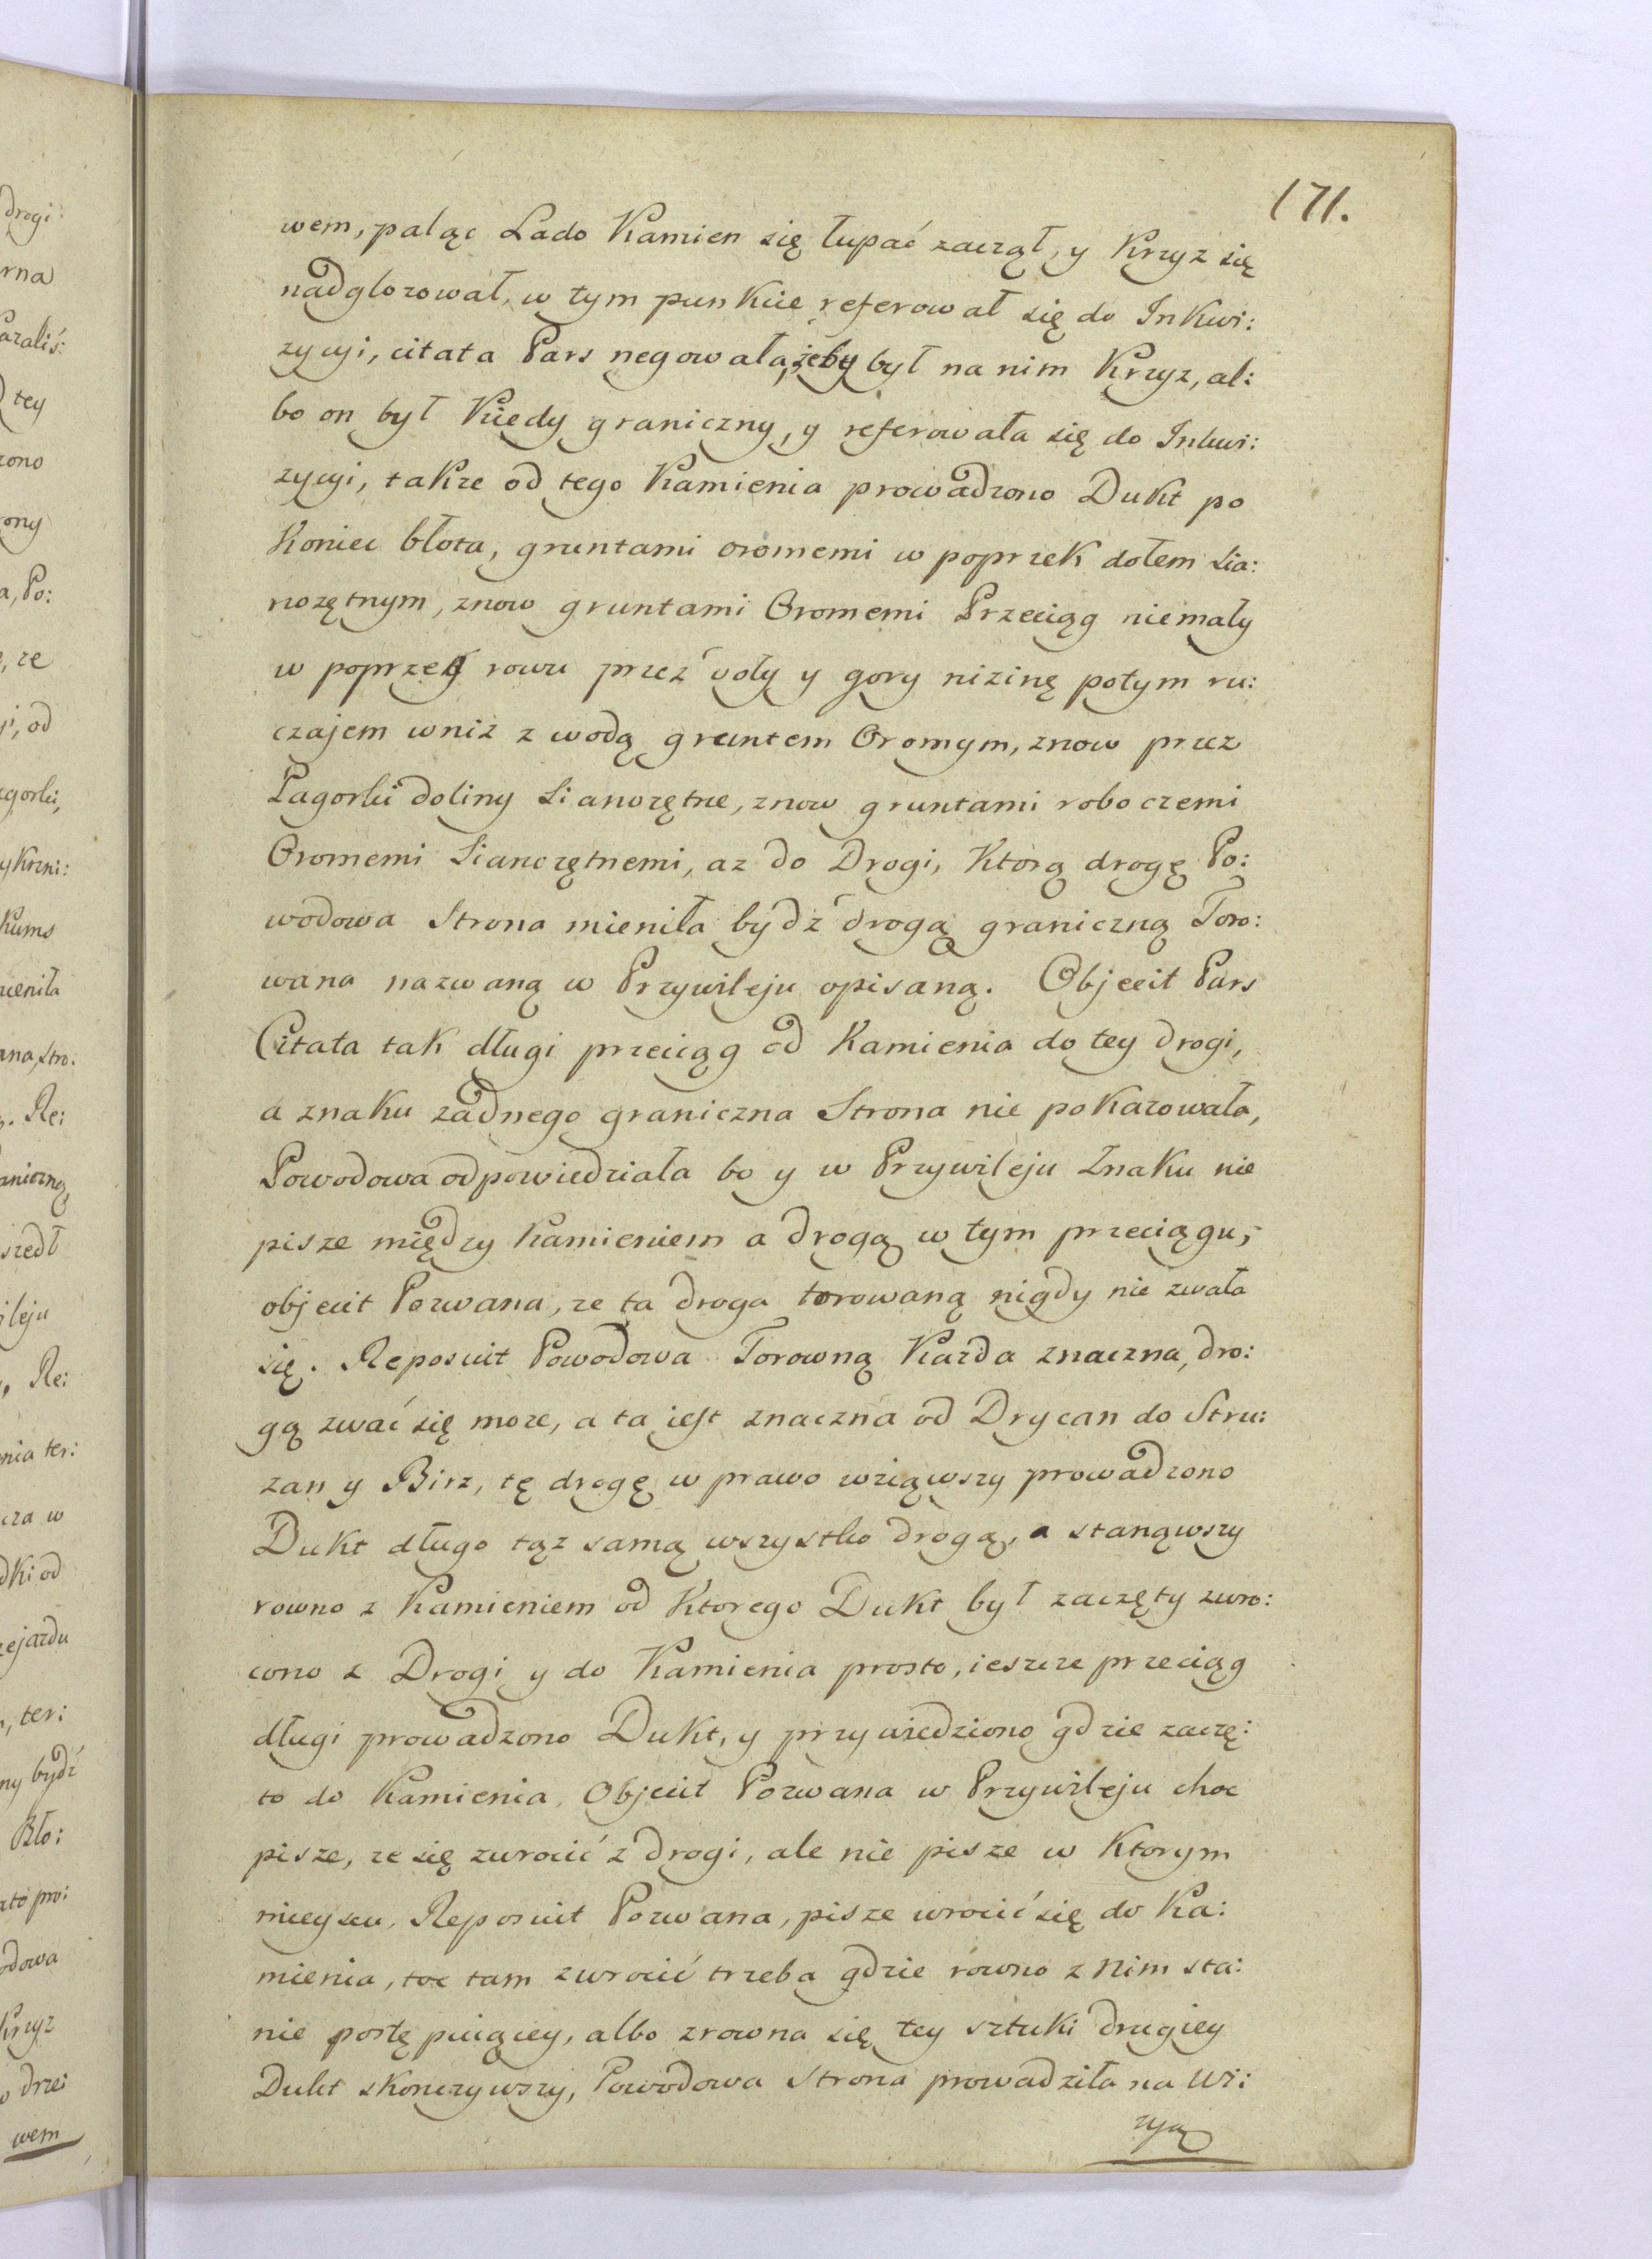 171.
wem, paląc Lado Kamien się łupać zaczął, y Krzyz się
nadglozował, w tym punkcie referował się do Inkwi:
zycyi, citata Pars negowała, żeby był na nim Krzyz, al:
bo on był Kiedy graniczny, y referowała się do Inkwi:
zycyi, takze od tego Kamienia prowadzono Dukt po
Koniec błota, gruntami oromemi w poprzek dołem sia:
nozętnym, znow gruntami Oromemi Przeciąg niemały
w poprzek rowu przez doły y gory nizinę potym ru:
czajem wniz z wodą gruntem Oromym, znow przez
Pagorki doliny Sianozętne, znow gruntami roboczemi
Oromemi Sianozętnemi, az do Drogi, Ktorą drogę Po:
wodowa Strona mieniła bydź drogą graniczną Toro:
wana nazwaną w Przywileju opisaną. Objecit Pars
Citata tak długi przeciąg od Kamienia do tey drogi,
a znaku zadnego graniczna Strona nie pokazowała,
Powodowa odpowiedziała bo y w Przywileju Znaku nie
pisze między Kamieniem a drogą w tym przeciągu;
objecit Pozwana, ze ta droga torowaną nigdy nie zwała
się. Reposuit Powodowa Torowną Kazda znaczna, dro:
gą zwać się moze, a ta jest znaczna od Drycan do Stru:
zan y Birz, tę drogę w prawo wziąwszy prowadzono
Dukt długo tąz samą wszystko drogą, a stanąwszy
rowno z Kamieniem od Ktorego Dukt był zaczęty zwro:
cono z Drogi y do Kamienia prosto, ieszcze przeciąg
długi prowadzono Dukt, y przywiedziono gdzie zaczę:
to do Kamienia. Objecit Pozwana w Przywileju choc
pisze, ze się zwrocić z drogi, ale nie pisze w Ktorym
mieyscu, Reposuit Pozwana, pisze wrocić się do Ka:
mienia, toc tam zwrocić trzeba gdzie rowno z nim sta:
nie postępuiącey, albo zrowna się tey sztuki drugiey
Dukt skonczywszy, Powodowa Strona prowadziła na Wi:
zyą
drogi
rna
tey
zono
ony
a, Po:
, ze
, od
Kums
ieniła
na, stro:
. Re:
aniczną
szedł
ileju
, Re:
nia ter:
cza w
dki od
ejazdu
, ter:
ny bydź
Bło:
ato pro:
odowa
Krzyz
o drze:
wem